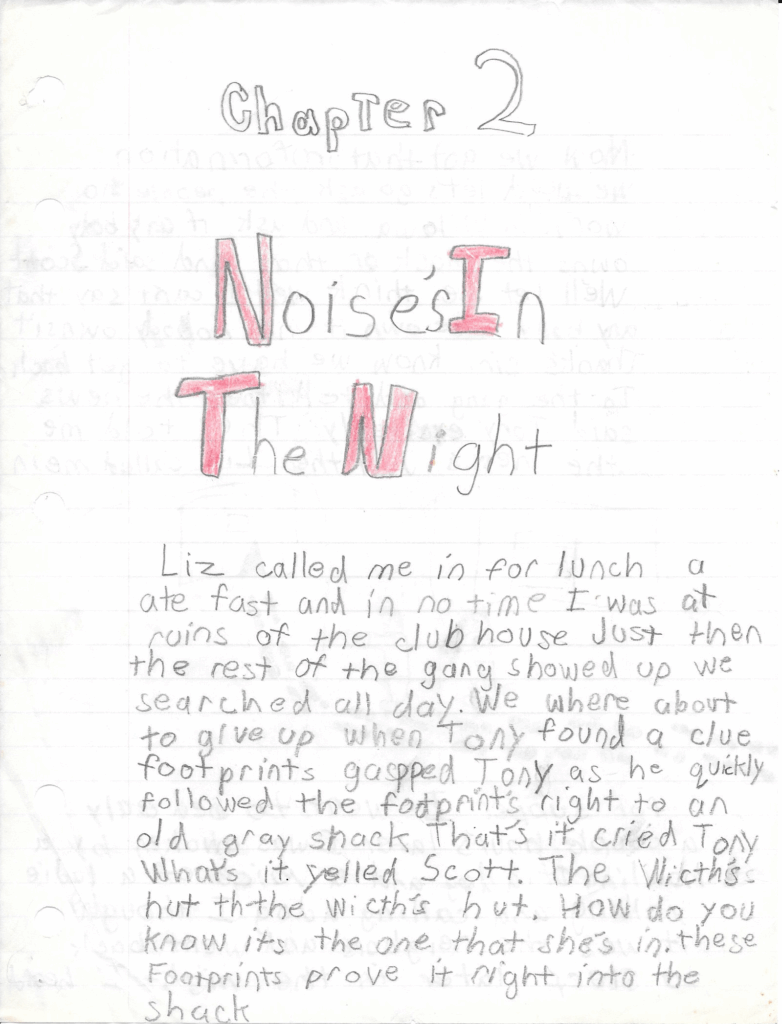 Chapter 2
Noise's In
The Night
Liz called me in for lunch a
ate fast and in no time I was at
ruins of the clubhouse Just then
the rest of the gang showed up we
searched all day. We where about
to give up when Tony found a clue
footprints gaspped Tony as he quickly
followed the footprint's right to an
old gray shack That's it cried Tony
What's it yelled Scott. The Wicth's
hut th-the wicth's hut. How do you
know it's the one that she's in. these
Footprints prove it right into the
shack